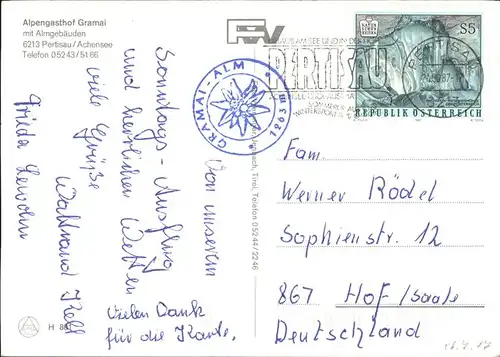 Alpengasthof Gramai
mit Almgebäuden
6213 Pertisau / Achensee
Telefon 05243/5166
PERTISAU
S5
REPUBLIK ÖSTERREICH
GRAMAI-ALM
1263 m
Von unserem
Sonntags-Ausflug
und herrlichen Wetter
viele Grüße
Waltraud
Frieda
Vielen Dank
für die Karte.
Tirol, Telefon 05244/2246
Fam.
Werner Rödel
Sophienstr. 12
867 Hof/Saale
Deutschland
H 88